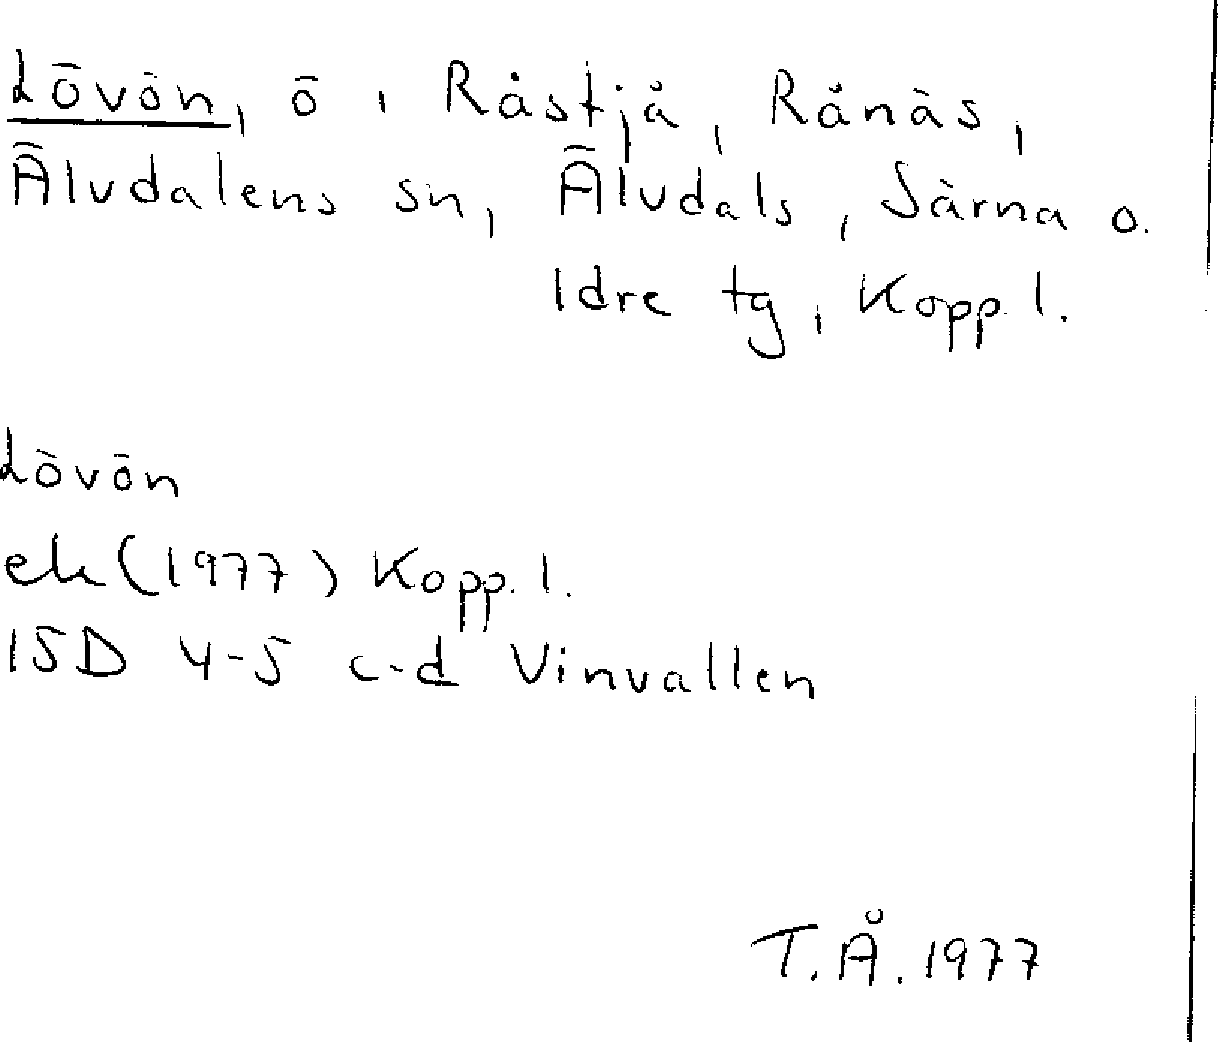 Lövön, ö i Råstjä, Rånäs,
Älvdalens sn, Älvdals, Särna o.
Idre tg, Kopp. l.
Lövön
ek (1977) Kopp. l.
15D 4-5 c-d Vinvallen
T.Å. 1977